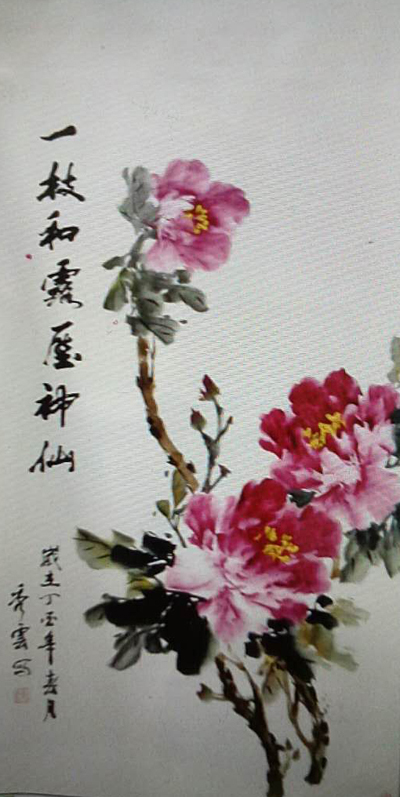 一枝和露压神仙
岁在丁酉年春月
秀云写